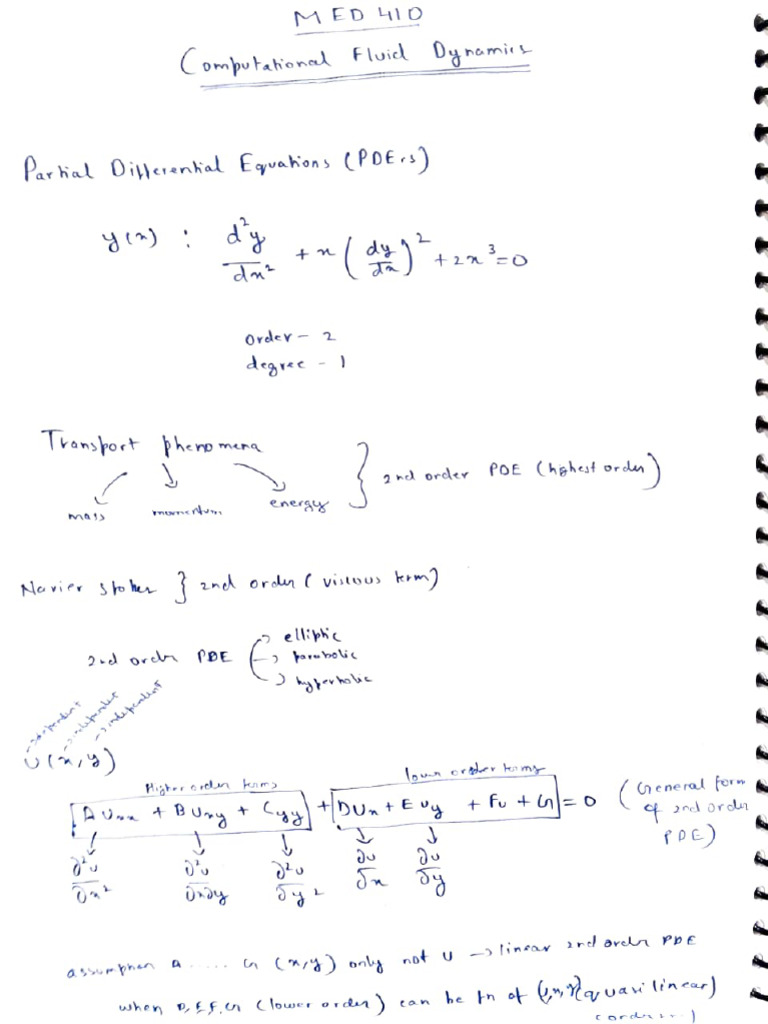 MED 410
Computational Fluid Dynamics
Partial Differential Equations (PDE's)
y(x) : d²y/dx² + x (dy/dx)² + 2x³ = 0
order - 2
degree - 1
Transport phenomena
mass momentum energy } 2nd order PDE (highest order)
Navier stokes } 2nd order (viscous term)
2nd order PDE → elliptic
→ parabolic
→ hyperbolic
→ dependent → independent → independent
U(x,y)
Higher order terms lower order terms
AUxx + BUxy + Cyy + DUx + EUy + FU + G = 0 (General form of 2nd order PDE)
∂²u/∂x² ∂²u/∂x∂y ∂²u/∂y² ∂u/∂x ∂u/∂y
assumption A ..... G (x,y) only not U → linear 2nd order PDE
when D,E,F,G (lower order) can be fn of (quasi linear)